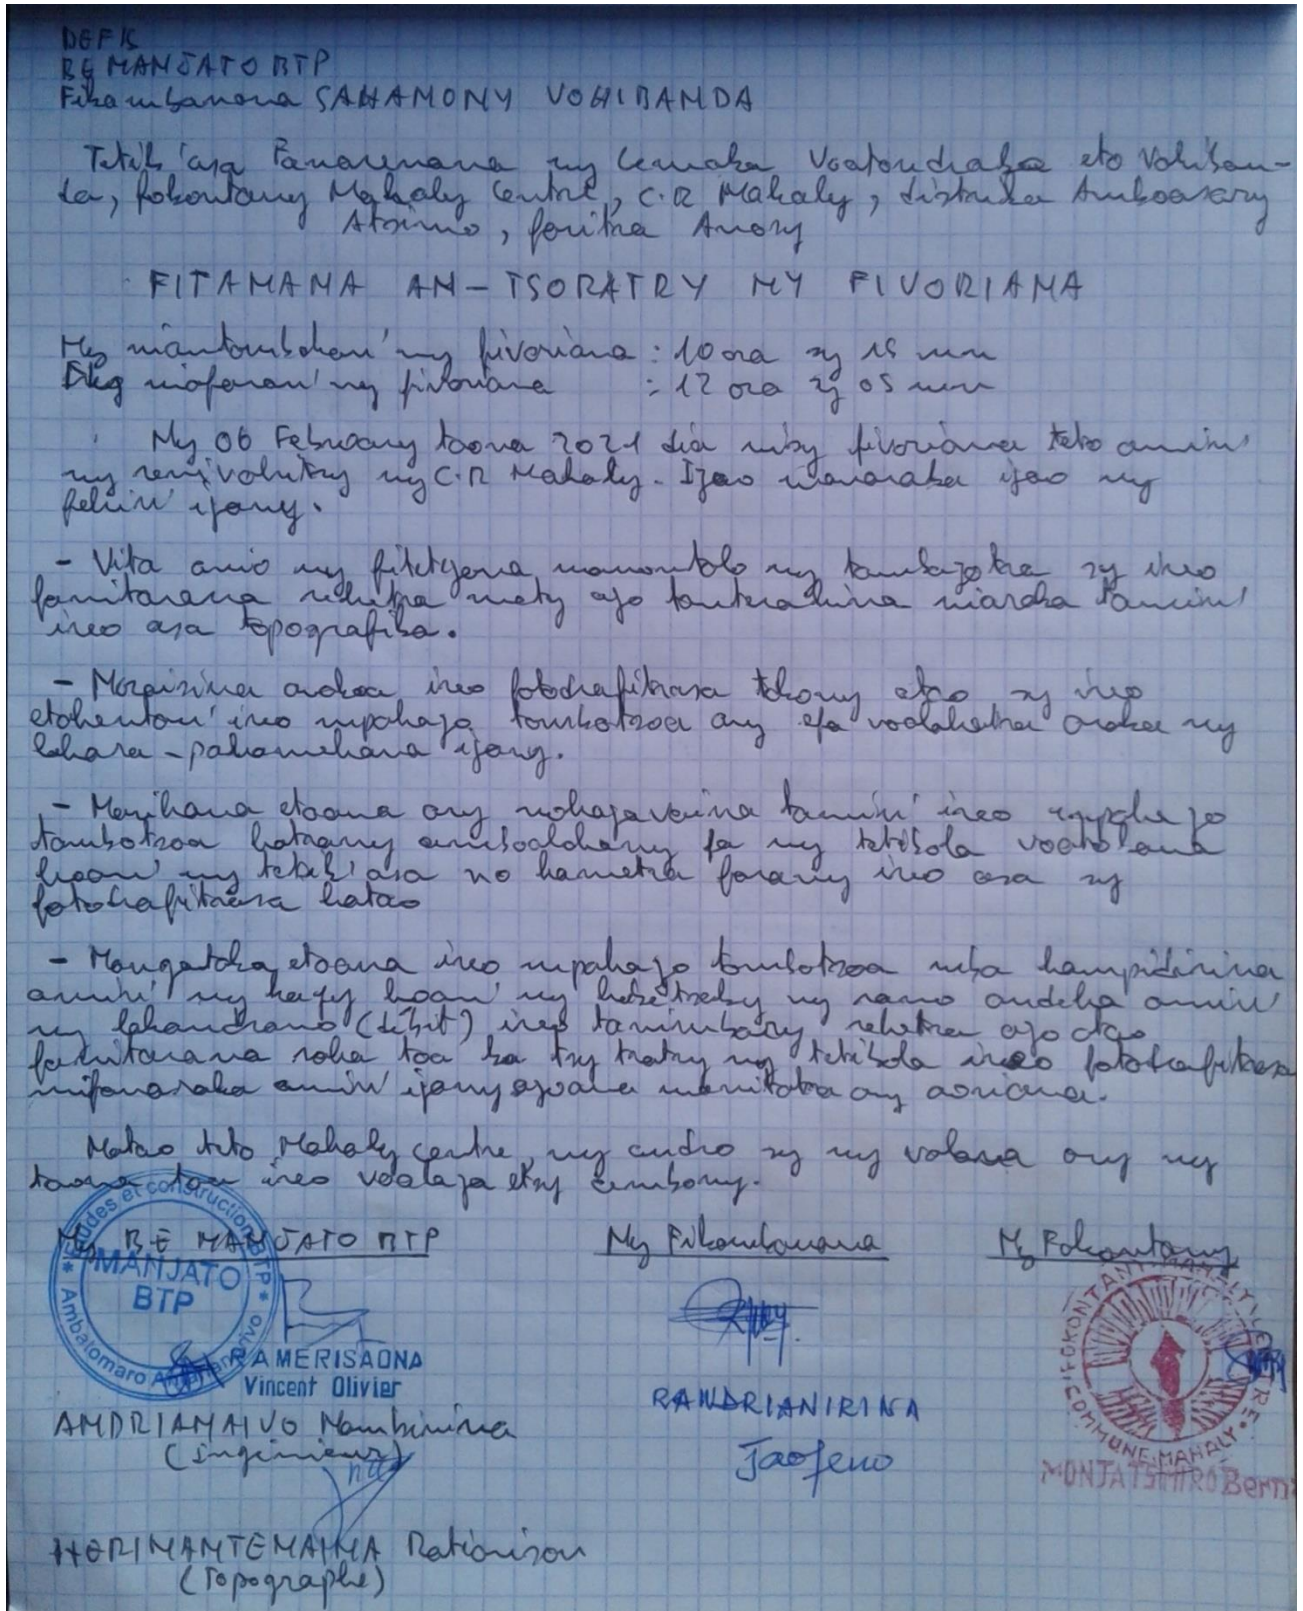 DEFIS
BE MANJATO BTP
Fikambanana SAHAMONY VOHIBANDA
Tetik'asa Fanarenana ny lemaka Voatondraka eto Vohiban-
da, fokontany Mahaly Centre, C.R Mahaly, distrika Amboasary
Atsimo, faritra Anosy
FITANANA AN-TSORATRY NY FIVORIANA
Ny niantombohan'ny fivoriana : 10 ora sy 15 mn
Ny niafaran'ny fivoriana : 12 ora sy 05 mn
Ny 06 Febroary taona 2021 dia nisy fivoriana teto amin'
ny renivohitry ny C.R Mahaly. Izao manaraka izao ny
izany.
- Vita anio ny fitetezana manontolo ny tambazotra sy ireo
fanitarana rehetra mety azo tanterahina niaraka tamin'
ireo asa topografika.
- ireo fotodrafitrasa tokony atao sy ireo
ireo mpahazo tombotsoa any efa voalahatra araka ny
lahara-pahamehana izany.
- etoana ary tamin' ireo mpahazo
tombotsoa hatrany fa ny tetibola
hoan' ny tetik'asa no hametra farany ireo asa sy
fotodrafitrasa hatao
- Mangataka etoana ireo mpahazo tombotsoa mba hampidirina
amin' ny hoan' ny ny rano andeha amin'
ny lakandrano (débit) ireo tanimbary rehetra azo atao
fanitarana raha toa ka tsy ny tetibola ireo fotodrafitrasa
mifanaraka amin' izany manitatra any aoriana.
Natao teto Mahaly centre, ny andro sy ny volana ary ny
taona ireo voalaza etsy ambony.
Ny BE MANJATO BTP Ny Fikambanana Ny Fokontany
Etudes et construction BTP
MANJATO
BTP
Ambalomaro Antananarivo
RAMERISAONA
Vincent Olivier
ANDRIANAIVO Mambinina
(Ingénieur)
HERIMANTENAINA Rationison
(Topographe)
RANDRIANIRINA
Jaofeno
FOKONTANY MAHALY CENTRE
COMMUNE MAHALY